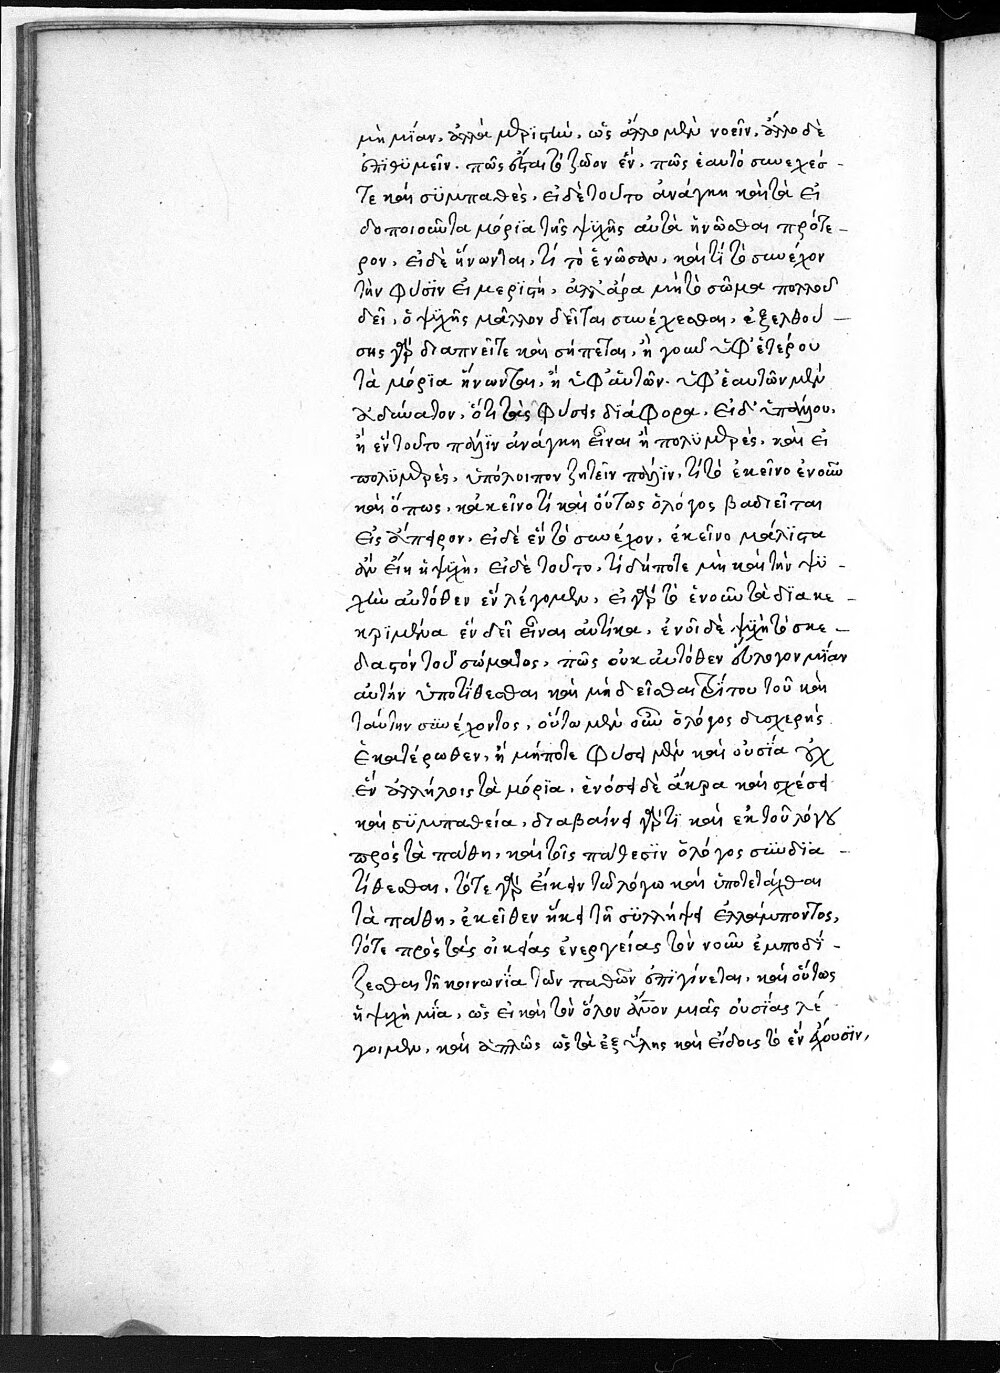 μὴ μίαν, ἀλλὰ μεριστὴν, ὡς ἄλλο μὲν νοεῖν, ἄλλο δὲ
ἐπιθϋμεῖν. πῶς ἔσται τὸ ζῶον ἕν, πῶς ἑαυτὸ συνεχές
τε καὶ σϋμπαθὲς, εἰ δὲ τοῦτο ἀνάγκη καὶ τὰ εἰ
δοποιοῦντα μόρϊα τῆς ψϋχῆς αὐτὰ ἡνῶσθαι πρότε-
ρον, εἰ δὲ ἥνωνται, τί τὸ ἑνῶσαν, καὶ τί τὸ συνέχον
τὴν φύσϊν εἰ μερϊστὴ, ἀλλ' ἄρα μὴ τὸ σῶμα πολλοῦ
δεῖ, ὃ ψϋχῆς μᾶλλον δεῖται συνέχεσθαι, ἐξελθού-
σης γὰρ διαπνεῖται καὶ σήπεται, ἢ γοῦν ὑφ' ἑτέρου
τὰ μόρϊα ἥνωνται, ἢ ὑφ' αὑτῶν. ὑφ' ἑαυτῶν μὲν
ἀδύνατον, ὅτι τὰς φύσεις δϊάφορα, εἰ δ' ὑπ' ἄλλου,
ἢ ἓν τοῦτο πάλϊν ἀνάγκη εἶναι ἢ πολϋμερές, καὶ εἰ
πολϋμερὲς, ὑπόλοιπον ζητεῖν πάλϊν, τί τὸ ἐκεῖνο ἑνοῦν
καὶ ὅπως, κἀκεῖνο τί καὶ οὕτως ὁ λόγος βαδιεῖται
εἰς ἄπειρον, εἰ δὲ ἓν τὸ συνέχον, ἐκεῖνο μάλϊστα
ἂν εἴη ἡ ψϋχὴ, εἰ δὲ τοῦτο, τί δήποτε μὴ καὶ τὴν ψϋ-
χὴν αὐτόθεν ἓν λέγομεν, εἰ γὰρ τὸ ἑνοῦν τὰ δϊακε-
κρϊμένα ἓν δεῖ εἶναι αὐτίκα, ἑνοῖ δὲ ψϋχὴ τὸ σκε-
δαστὸν τοῦ σώματος, πῶς οὐκ αὐτόθεν εὔλογον μίαν
αὐτὴν ὑποτίθεσθαι καὶ μὴ δεῖσθαι τρίτου τοῦ καὶ
ταύτην σϋνέχοντος, οὕτω μὲν οὖν ὁ λόγος δυσχερὴς
ἑκατέρωθεν, ἢ μήποτε φύσει μὲν καὶ οὐσία οὐχ
ἓν ἀλλήλοις τὰ μόρϊα, ἑνώσει δὲ ἄκρα καὶ σχέσει
καὶ σϋμπαθεία, διαβαίνει γάρ τι καὶ ἐκ τοῦ λόγου
πρὸς τὰ πάθη, καὶ τοῖς πάθεσϊν ὁ λόγος σϋνδϊα-
τίθεσθαι, τότε γὰρ εἴκειν τῶ λόγω καὶ ὑποτετάχθαι
τὰ πάθη, ἐκεῖθεν ἥκει τῆ σϋλλήψει ἐλλάμποντος,
τότε πρὸς τὰς οἰκείας ἐνεργείας τὸν νοῦν ἐμποδί-
ζεσθαι τῆ κοινωνία τῶν παθῶν ἐπιγίνεται, καὶ οὕτως
ἡ ψϋχὴ μία, ὡς εἰ καὶ τὸν ὅλον ἄνον μιᾶς οὐσίας λέ
γοιμεν, καὶ ἁπλῶς ὡς τὰ ἐξ ὕλης καὶ εἴδους τὸ ἓν ἔχουσϊν,